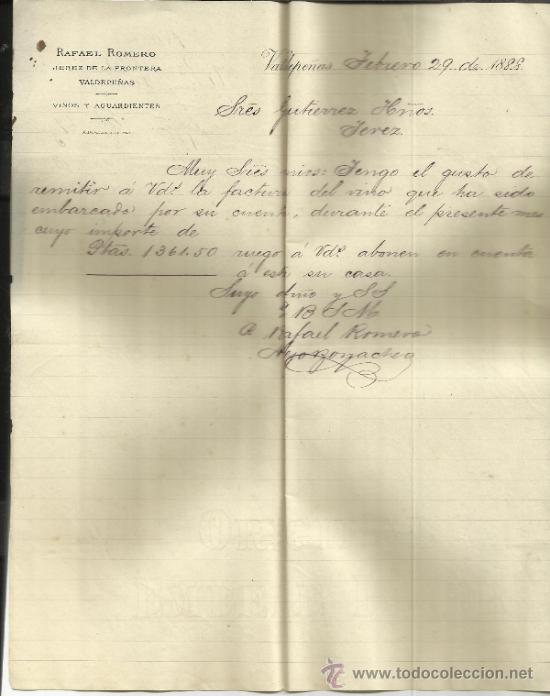 RAFAEL ROMERO
JEREZ DE LA FRONTERA
VALDEPEÑAS
VINOS Y AGUARDIENTES
Valdepeñas Febrero 29 de 1888.
Srēs Gutierrez Hños.
Jerez.
Muy Srēs mios: Tengo el gusto de
remitir á Vdˢ la factura del vino que ha sido
embarcado por su cuenta, durante el presente mes
cuyo importe de
Ptas. 1361.50 ruego á Vdˢ abonen en cuenta
a esta su casa.
Suyo Afño y SS
Q B S M
Rafael Romero
todocoleccion
www.todocoleccion.net